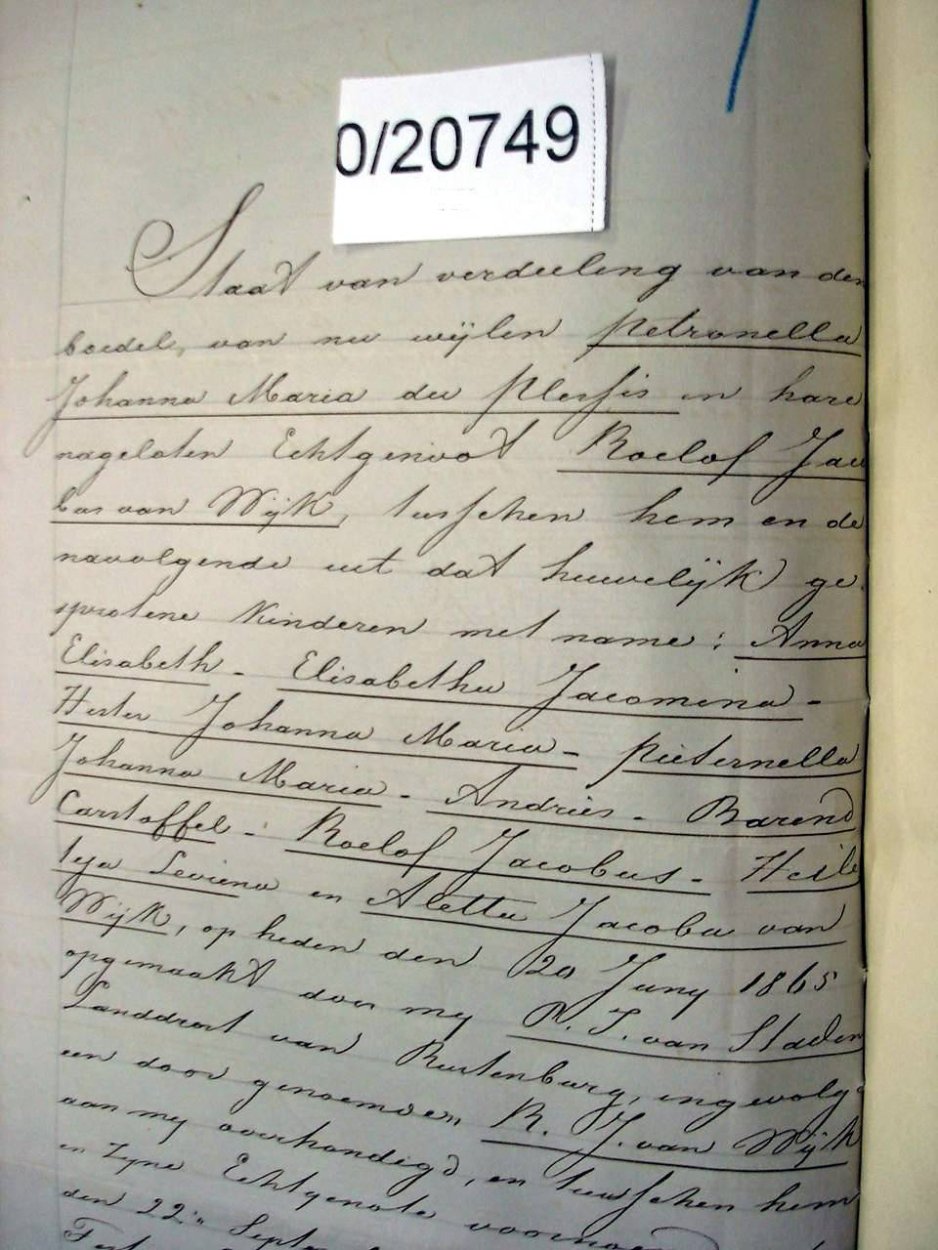 0/20749
Staat van verdeeling van den
boedel, van nu wijlen Petronella
Johanna Maria du Plessis en hare
nagelaten Echtgenoot Roelof Jaco
bus van Wijk, tusschen hem en de
navolgende uit dat huwelijk ge-
sprotene Kinderen met name: Anna
Elisabeth - Elisabetha Jacomina -
Hester Johanna Maria - Pieternella
Johanna Maria - Andries - Barend
Carstoffel - Roelof Jacobus - Heile
tje Leviena en Aletta Jacoba van
Wijk, op heden den 20 Juny 1865
opgemaakt door my P. J. van Staden
Landdrost van Rustenburg, ingevolge
een door genoemden R. J. van Wijk
aan my overhandigd, en tusschen hem
en Zyne Echtgenote
den 22n